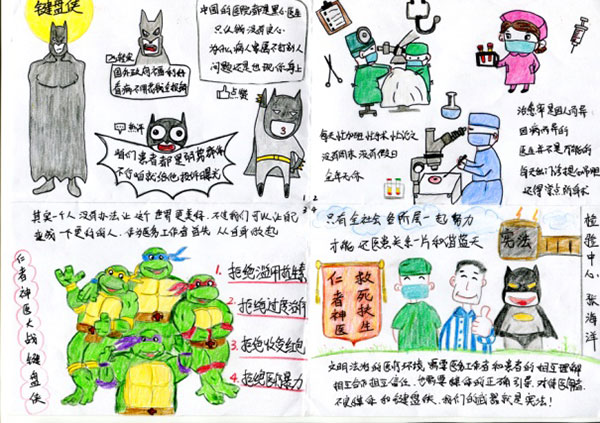 键盘侠
中国的医院都是黑心医生
只认钱没有良心
为什么病人家属不打别人
问题还是出现你身上
转发
国外政府福利好
看病不用花钱全报销
点赞
热评
咱们患者都是弱势群体
不行咱就给他投诉曝光
每天忙加班忙手术忙论文
没有周末没有假日
全年无休
治愈率是因人而异
因病而异的
医生并不是万能的
每天出门诊提心吊胆
还得
1 2
3 4
其实一个人没有办法让这个世界更美好,不过我们可以让自己
变成一个更好的人,作为医务工作者首先从自身做起
仁者神医大战键盘侠
1. 拒绝滥用抗生素
2. 拒绝过度治疗
3. 拒绝收受红包
4. 拒绝医疗暴力
只有全社会各阶层一起努力
才能还医患关系一片和谐蓝天
宪法
检验中心 张海洋
救死扶生
仁者神医
文明法治的医疗环境,需要医务工作者和患者的相互理解
相互合作相互信任,也需要媒体的正确引导,
媒体和键盘侠,我们的武器就是宪法!